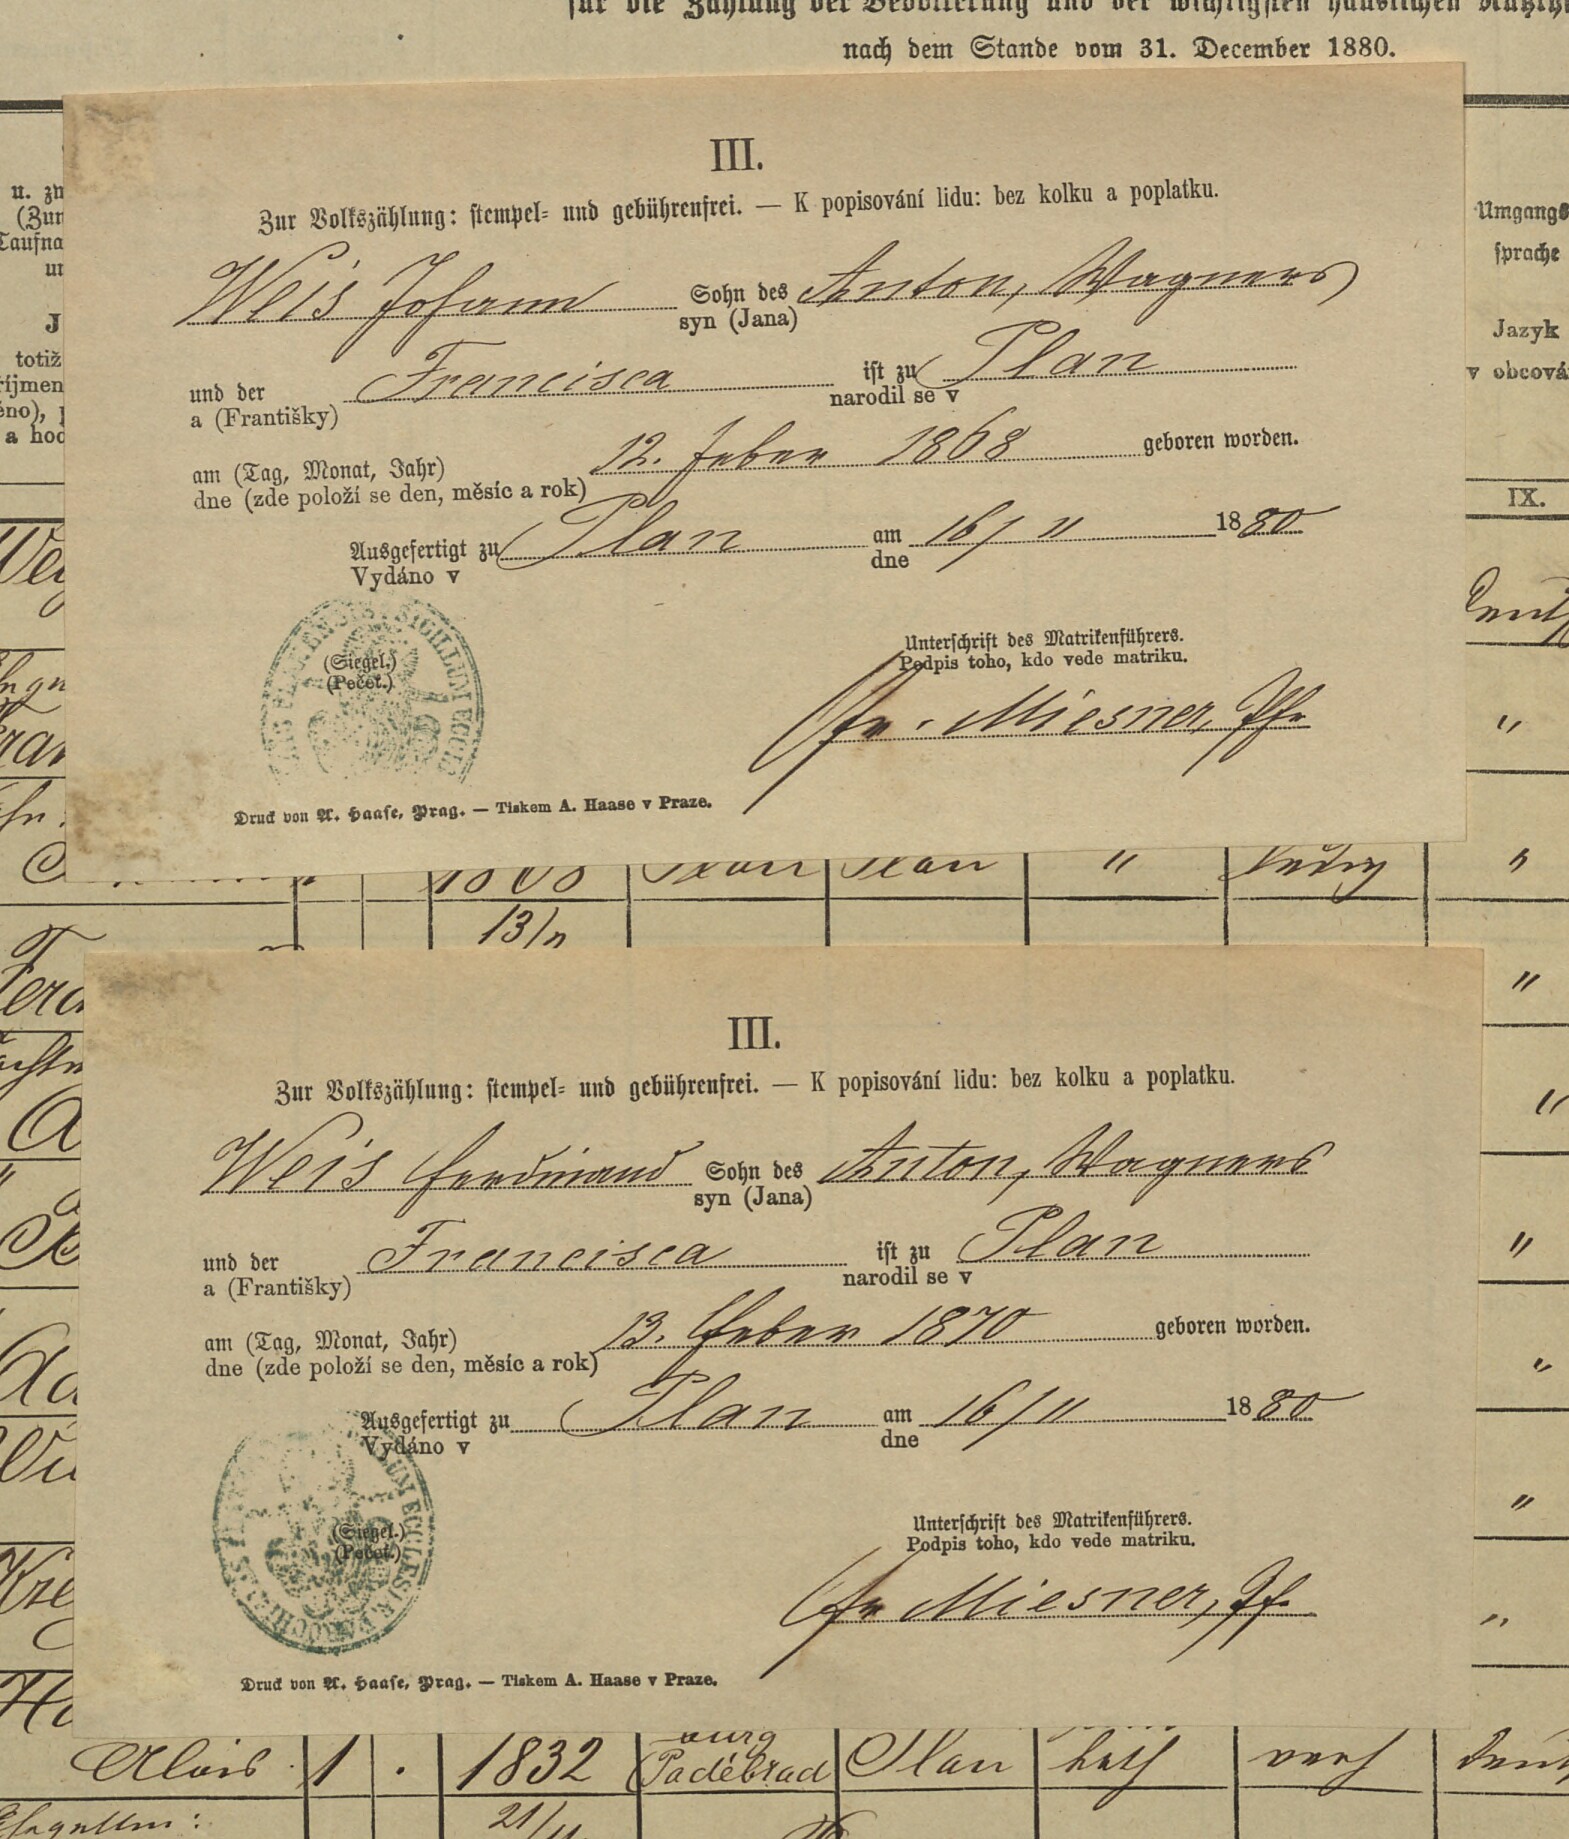 für die Zählung der Bevölkerung und der wichtigsten häuslichen
nach dem Stande vom 31. December 1880.
III.
Zur Volkszählung: stempel- und gebührenfrei. — K popisování lidu: bez kolku a poplatku.
Weis Johann Sohn des Anton, Wagners
syn (Jana)
und der Francisca ist zu Plan
a (Františky) narodil se v
am (Tag, Monat, Jahr) 12. Feber 1868 geboren worden.
dne (zde položí se den, měsíc a rok)
Ausgefertigt zu Plan am 16/11 1880
Vydáno v dne
(Siegel.)
(Pečeť.)
SIGILLUM ECCLES
Unterschrift des Matrikenführers.
Podpis toho, kdo vede matriku.
Fr. Miesner, Pfr
Druck von A. Haase, Prag. — Tiskem A. Haase v Praze.
u. zw
(Zun
Taufna
un
J
totiž
říjmen
éno), p
a hod
Umgangs
sprache
Jazyk
v obcová
IX.
"
1868 Plan Plan " ledig "
13/2
"
III.
Zur Volkszählung: stempel- und gebührenfrei. — K popisování lidu: bez kolku a poplatku.
Weis Ferdinand Sohn des Anton, Wagners
syn (Jana)
und der Francisca ist zu Plan
a (Františky) narodil se v
am (Tag, Monat, Jahr) 13. Feber 1870 geboren worden.
dne (zde položí se den, měsíc a rok)
Ausgefertigt zu Plan am 16/11 1880
Vydáno v dne
(Siegel.)
(Pečeť.)
Unterschrift des Matrikenführers.
Podpis toho, kdo vede matriku.
Fr Miesner, Pf.
Druck von A. Haase, Prag. — Tiskem A. Haase v Praze.
"
"
"
"
"
Alois 1 . 1832 Poděbrad Plan kath verh deut
21/11